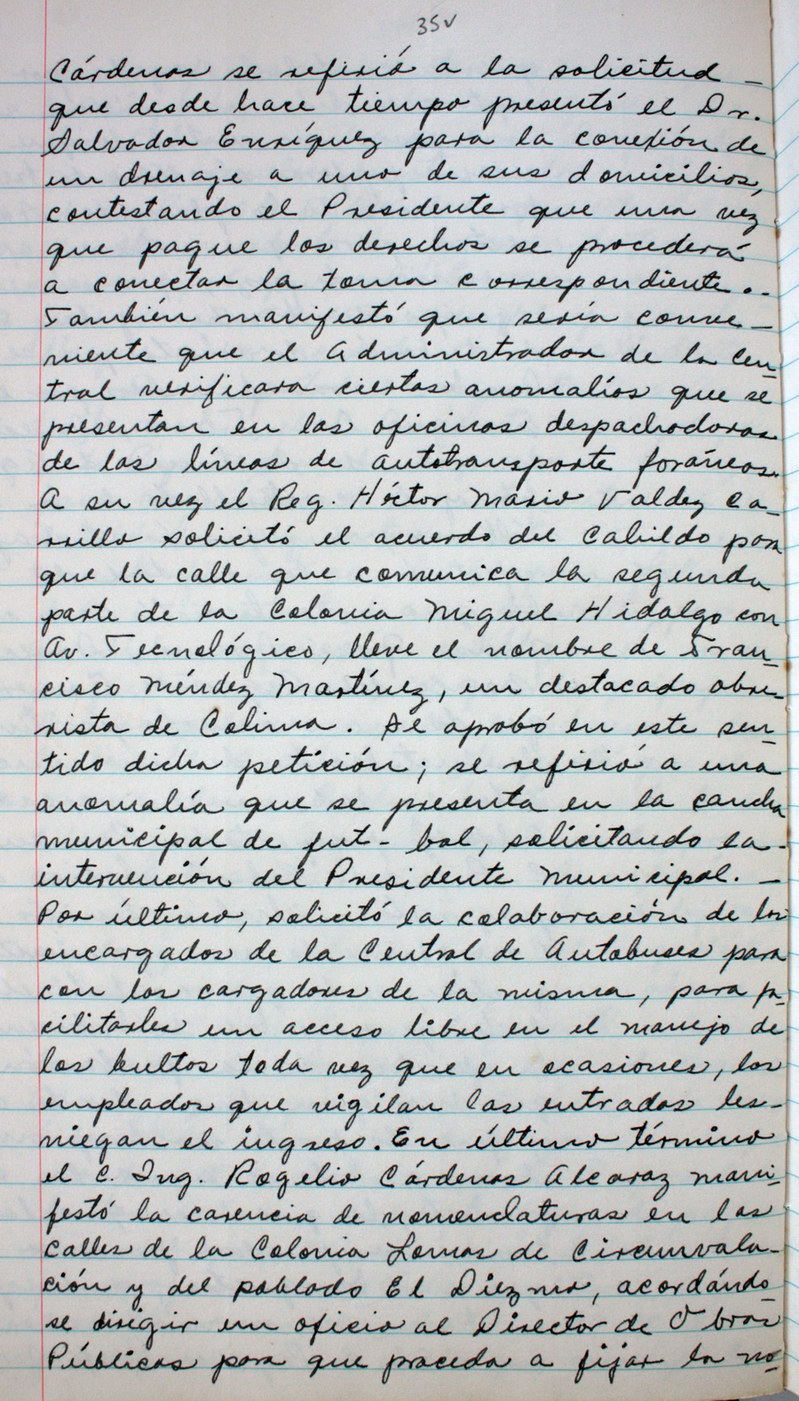 35v
Cárdenas se refirió a la solicitud -
que desde hace tiempo presentó el Dr.
Salvador Enríquez para la conexión de
un drenaje a uno de sus domicilios,
contestando el Presidente que una vez
que pague los derechos se procederá
a conectar la toma correspondiente..
También manifestó que sería conve-
niente que el Administrador de la Cen-
tral verificara ciertas anomalías que se
presentan en las oficinas despachadoras
de las líneas de autotransporte foráneas.
A su vez el Reg. Héctor Mario Valdez Ca-
rrillo solicitó el acuerdo del Cabildo para
que la calle que comunica la segunda
parte de la Colonia Miguel Hidalgo con
Av. Tecnológico, lleve el nombre de Fran-
cisco Méndez Martínez, un destacado obre-
rista de Colima. Se aprobó en este sen-
tido dicha petición; se refirió a una
anomalía que se presenta en la cancha
municipal de fut-bol, solicitando la-
intervención del Presidente Municipal. -
Por último, solicitó la colaboración de los
encargados de la Central de Autobuses para
con los cargadores de la misma, para fa-
cilitarles un acceso libre en el manejo de
los bultos toda vez que en ocasiones, los
empleados que vigilan las entradas les-
niegan el ingreso. En último término
el C. Ing. Rogelio Cárdenas Alcaraz mani-
festó la carencia de nomenclaturas en las
calles de la Colonia Lomas de Circunvala-
ción y del poblado El Diezmo, acordándo-
se dirigir un oficio al Director de Obras
Públicas para que proceda a fijar la no-